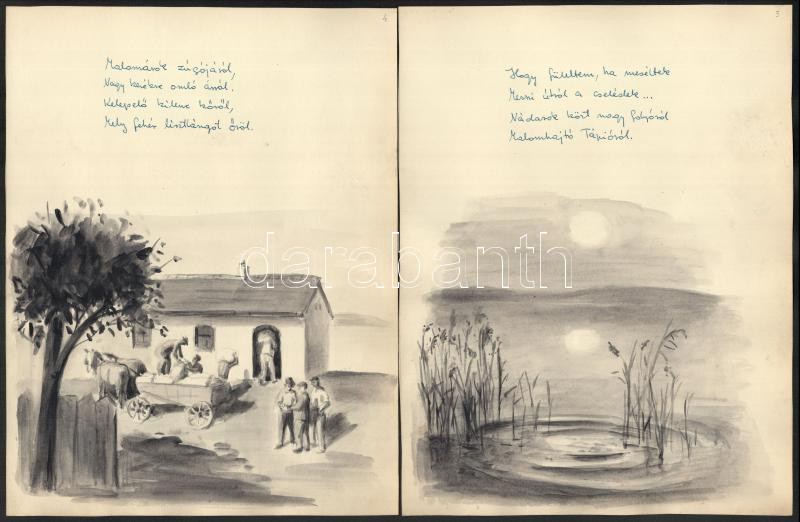 4
Malomárok zúgójáról,
Nagy kerékre omló árról.
Kelepelő kilenc kőről,
Mely fehér lisztlángot őröl.
3
Hogy füleltem, ha meséltek
Messi útról a cselédek...
Nádasok közt nagy folyóról
Malomhajtó Tápióról.
darabanth.com